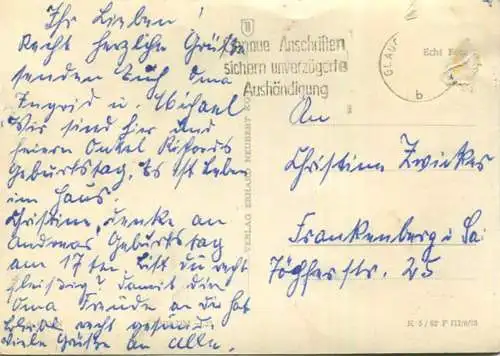 Ihr Lieben!
Recht herzliche Grüße
senden Euch Oma
Ingrid u. Michael
Wir sind hier und
feiern Onkel
Geburtstag. Es ist Leben
im Haus.
Christine, denke an
Andreas Geburtstag
am 17ten. Bist du recht
fleißig? damit die
Oma Freude an dir hat
bleibt recht gesund
viele Grüße an alle.
Genaue Anschriften
sichern unverzögerte
Aushändigung
GLAUC
b
Echt Foto
VERLAG ERHARD NEUBERT KG
An
Christine Zwickes
Frankenberg i. Sa
Töpferstr. 25